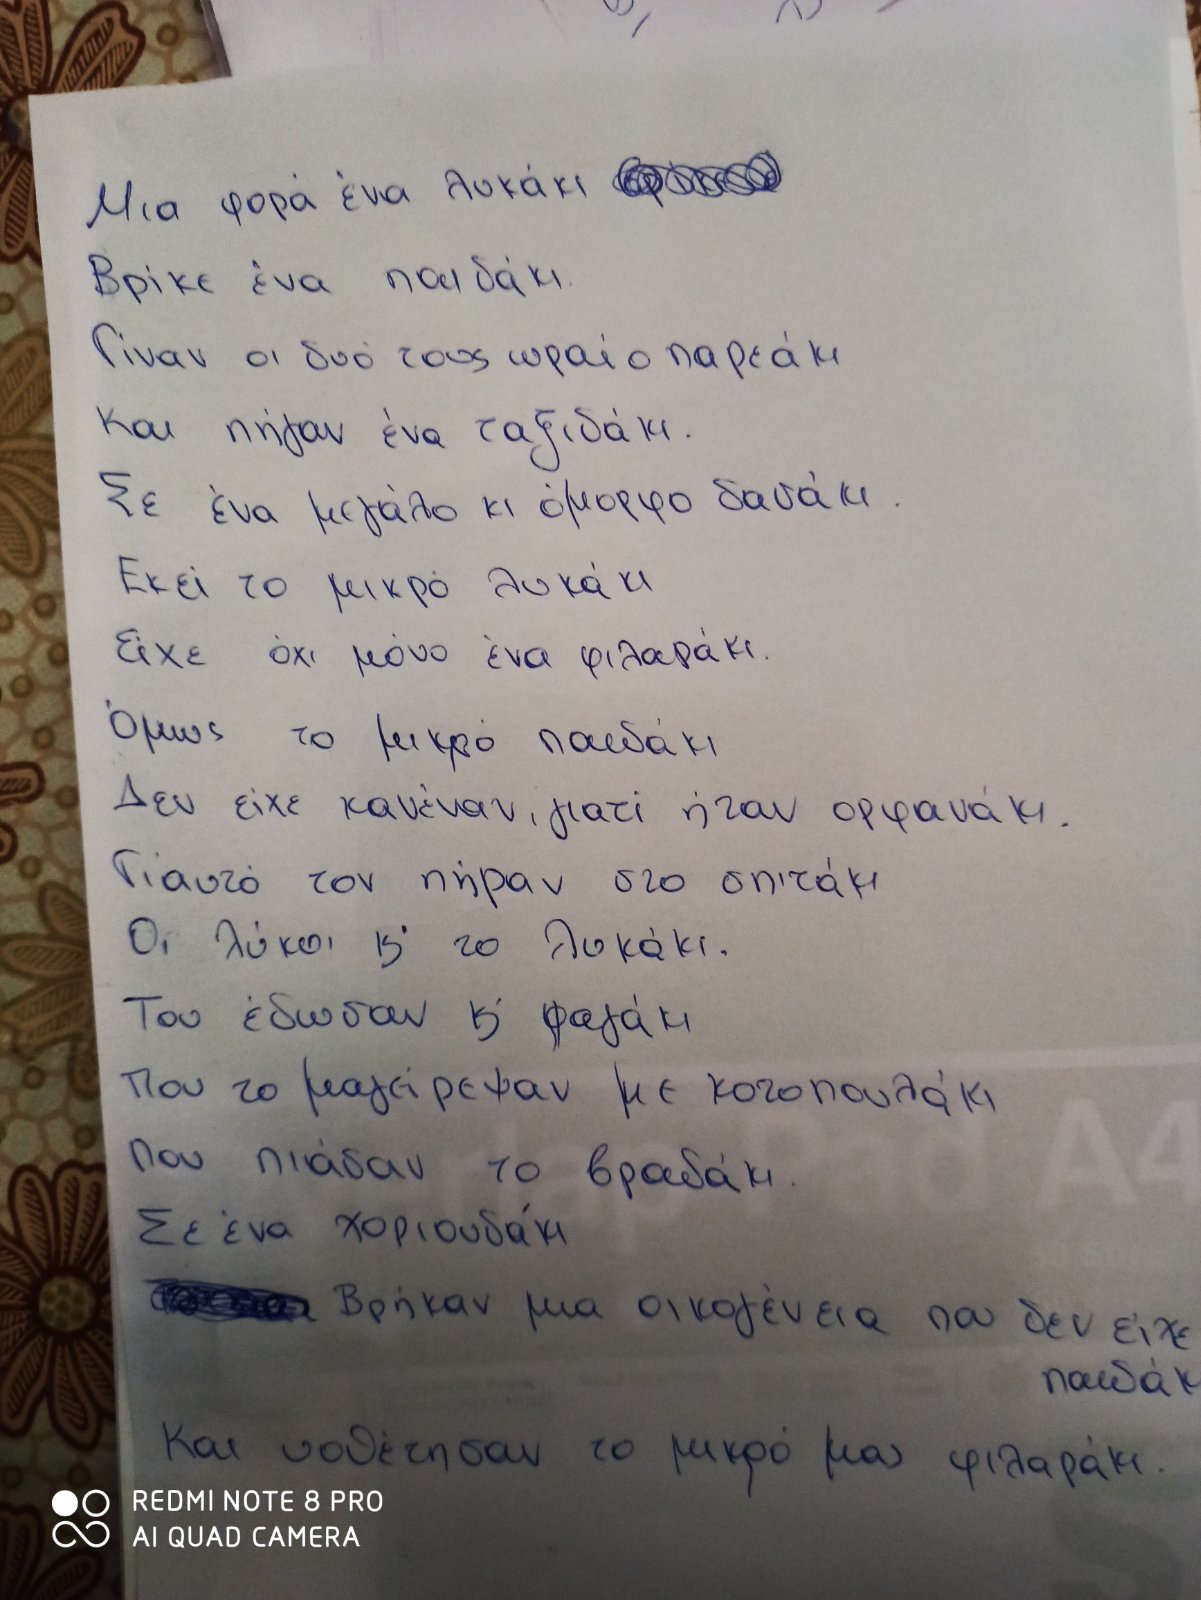 Μια φορά ένα λυκάκι
Βρίκε ένα παιδάκι.
Γίναν οι δυό τους ωραίο παρεάκι
Και πήγαν ένα ταξιδάκι.
Σε ένα μεγάλο κι όμορφο δασάκι.
Εκεί το μικρό λυκάκι
Είχε όχι μόνο ένα φιλαράκι.
Όμως το μικρό παιδάκι
Δεν είχε κανέναν, γιατί ήταν ορφανάκι.
Γιαυτό τον πήραν στο σπιτάκι
Οι λύκοι κ' το λυκάκι.
Του έδωσαν κ' φαγάκι
Που το μαγείρεψαν με κοτοπουλάκι
Που πιάσαν το βραδάκι.
Σε ένα χοριουδάκι
Βρήκαν μια οικογένεια που δεν είχε
παιδάκ
Και υοθέτησαν το μικρό μας φιλαράκι.
REDMI NOTE 8 PRO
AI QUAD CAMERA